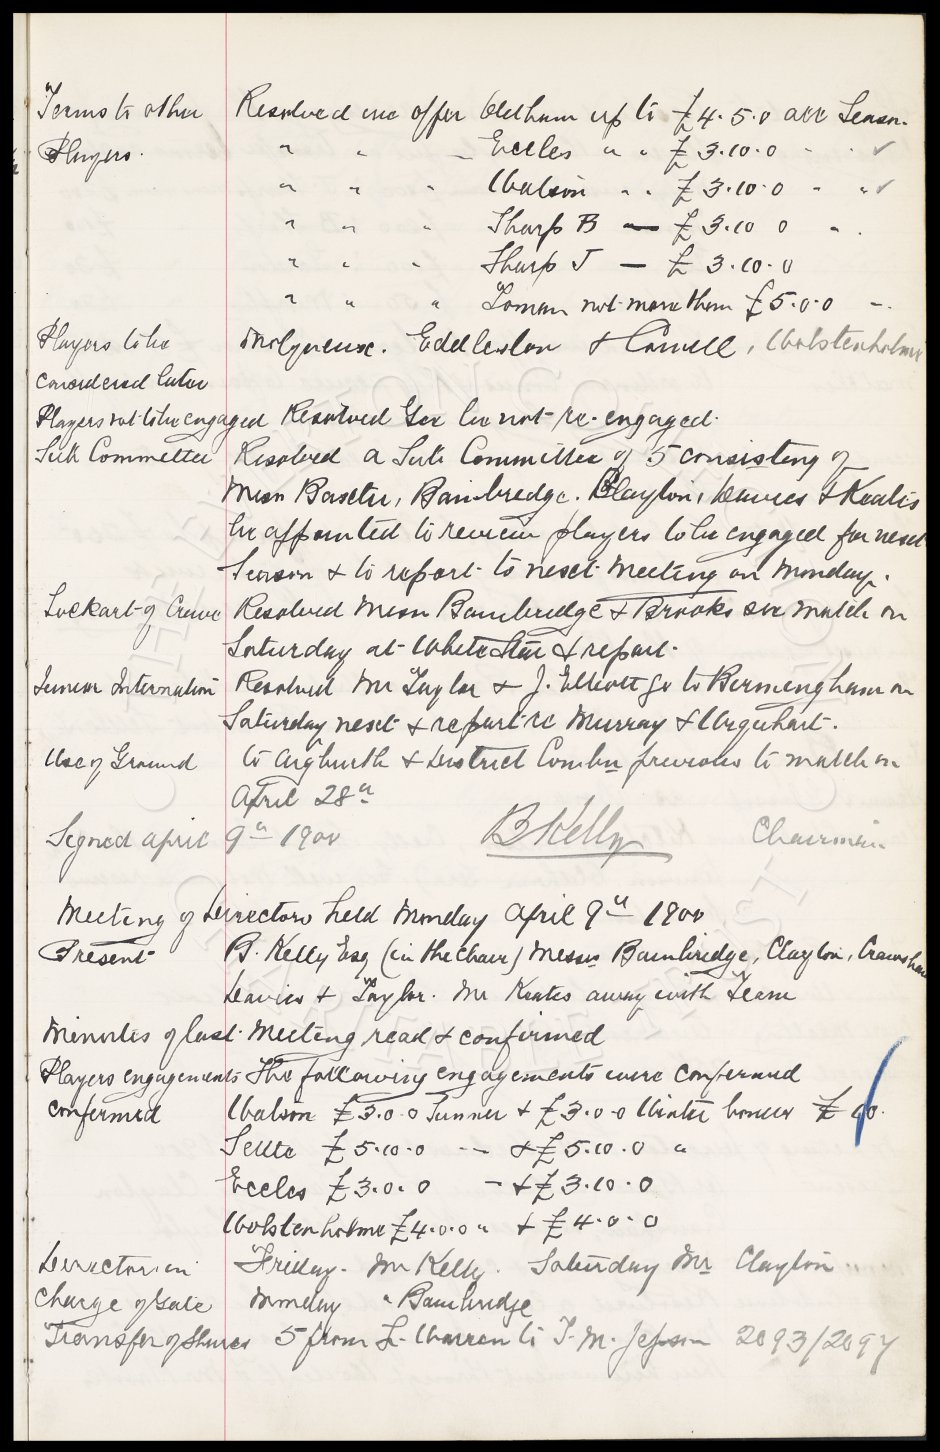 Terms to other Resolved we offer Oldham up to £4.5.0 all Season.
Players. " " – Eccles " " £3.10.0 " " ✓
" " " Watson " " £3.10.0 " " ✓
" " " Sharp B — £3.10 0 " .
" " " Sharp J — £ 3.10.0
" " " Toman not more than £5.0.0 –.
Players to be Molyneux. Eddleston & Howell, Wolstenholme
considered later
Players not to be engaged Resolved Gee be not re-engaged.
Sub Committee Resolved a Sub Committee of 5 consisting of
Messrs Baxter, Bainbridge. Clayton, Davies & Keates
be appointed to review players to be engaged for next
Season & to report to next Meeting on Monday.
Lockart of Crewe Resolved Messrs Bainbridge & Brooks see match on
Saturday at White Star & report.
Junior Internation Resolved Mr Taylor & J. Elliott go to Birmingham on
Saturday next & report re Murray & Urquhart.
Use of Ground to Aigburth & District Combn previous to match on
April 28th
Signed April 9th 1900 B Kelly Chairman
Meeting of Directors held Monday April 9th 1900
Present B. Kelly Esq (in the chair) Messrs Bainbridge, Clayton, Crawshaw
Davies & Taylor. Mr Keates away with Team
Minutes of last Meeting read & confirmed
Players engagements The following engagements were confirmed
confirmed Watson £3.0.0 Summer & £3.0.0 Winter bonus £10.
Settle £5.10.0 " – & £5.10.0 "
Eccles £3.0.0 – & £3.10.0
Wolstenholme £4.0.0 " & £4.0.0
Directors in Friday. Mr Kelly. Saturday Mr Clayton
charge of Gate Monday " Bainbridge
Transfer of Shares 5 from L. Warren to T. M. Jepson 2093/2097